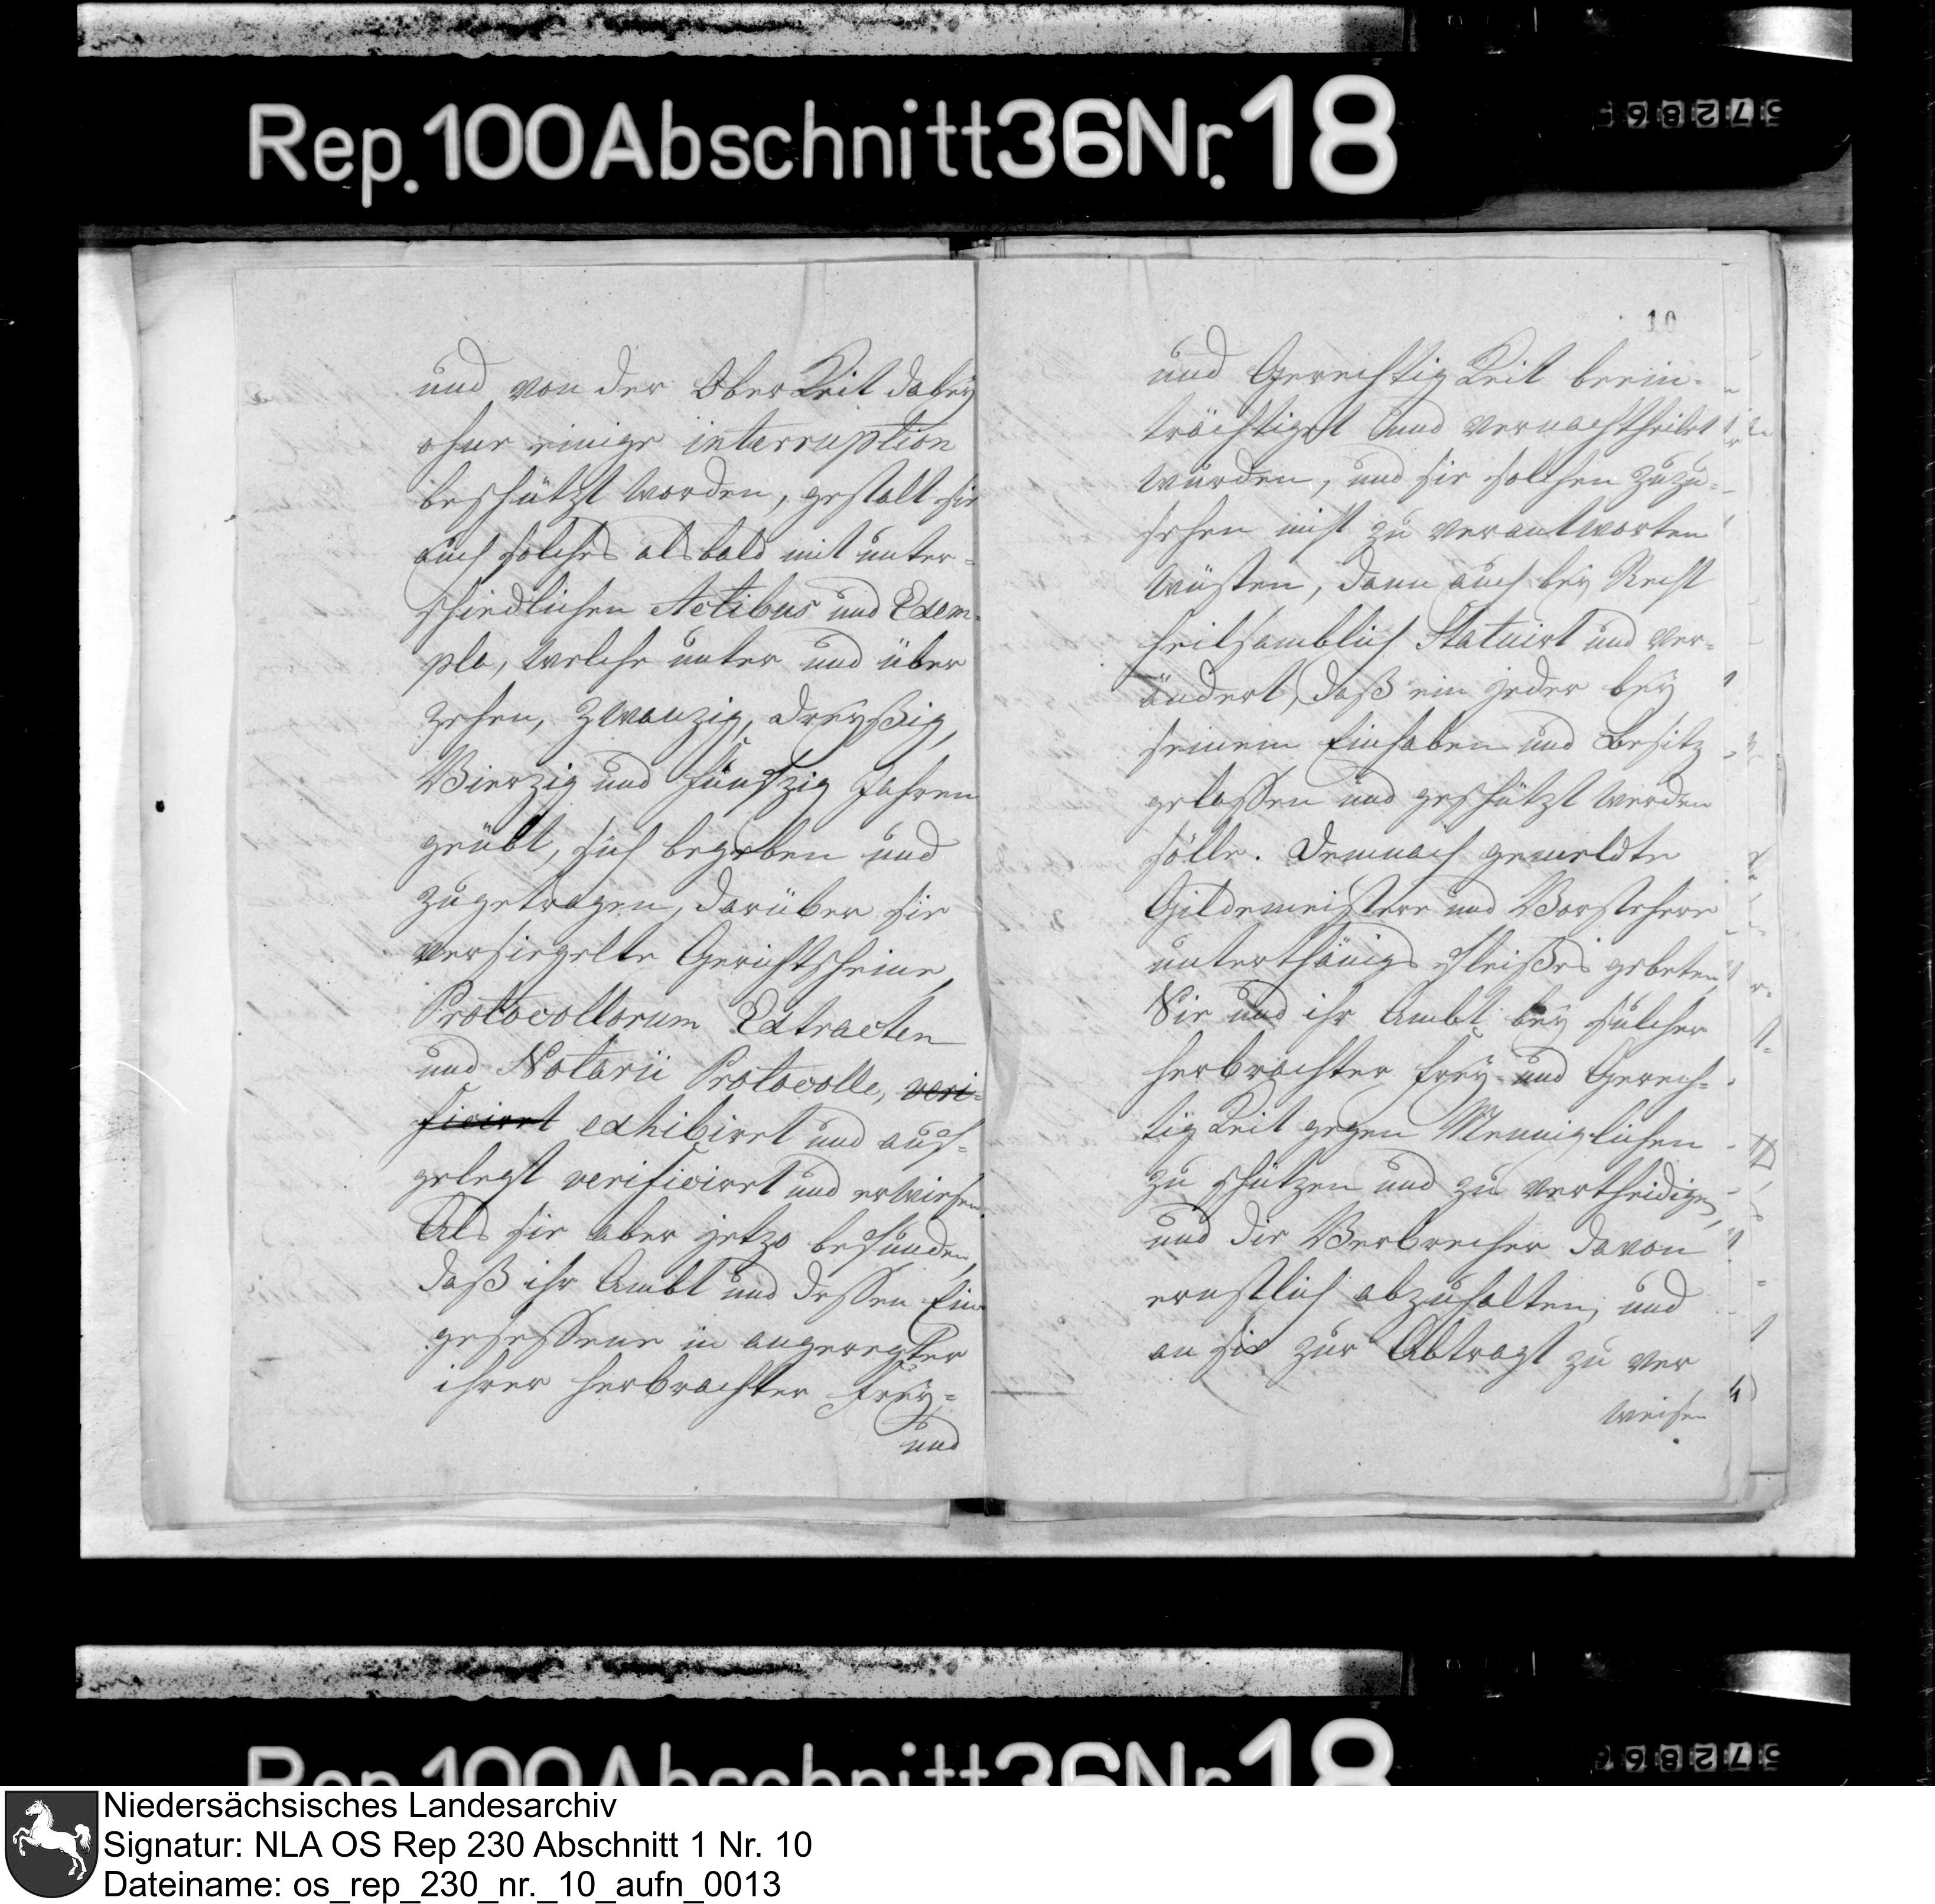 Rep. 100 Abschnitt 36 Nr. 18
57286
und von der OberKeit dabey
ohne einige interruption
beschützt worden, gestalt sie
auch solches alsbald mit unter-
schiedlichen Actibus und Exem-
pla, welche unter und über
zehen, zwanzig, dreyßig,
Vierzig und funfzig Jahren
geübt, sich begeben und
zugetragen, darüber sie
versiegelte Gerichtscheine,
Protocollorum Extracten
und Notarii Protocolle, veri-
ficirrt exhibirrt und auß-
gelegt verificirrt und erwiesen.
Als sie aber jetzo befunden,
daß ihr Ambt und dessen Ein-
gesessene in angeregter
ihrer herbrachter Frey-
und
10
und GerechtigKeit beein-
trächtiget und vernachtheilet
wurden, und sie solchen zuzu-
sehen nicht zu verantworten
wüsten, dann auch bey Recht
heilsamblich Statuirt und ver-
ändert, daß ein jeder bey
seinem Einhaben und Besitz
gelassen und geschützt werden
sölle. Demnach gemeldte
Gildemeistere und Vorstehere
unterthänigs Fleißes gebeten,
Sie und ihr Ambt bey sulcher
herbrachter Frey- und Gerech-
tigKeit gegen Menniglichen
zu schützen und zu vertheidigen,
und die Verbrecher davon
ernstlich abzuhalten, und
an sie zur Abtragt zu ver
weisen
Rep. 100 Abschnitt 36 Nr. 18
57286
Niedersächsisches Landesarchiv
Signatur: NLA OS Rep 230 Abschnitt 1 Nr. 10
Dateiname: os_rep_230_nr._10_aufn_0013